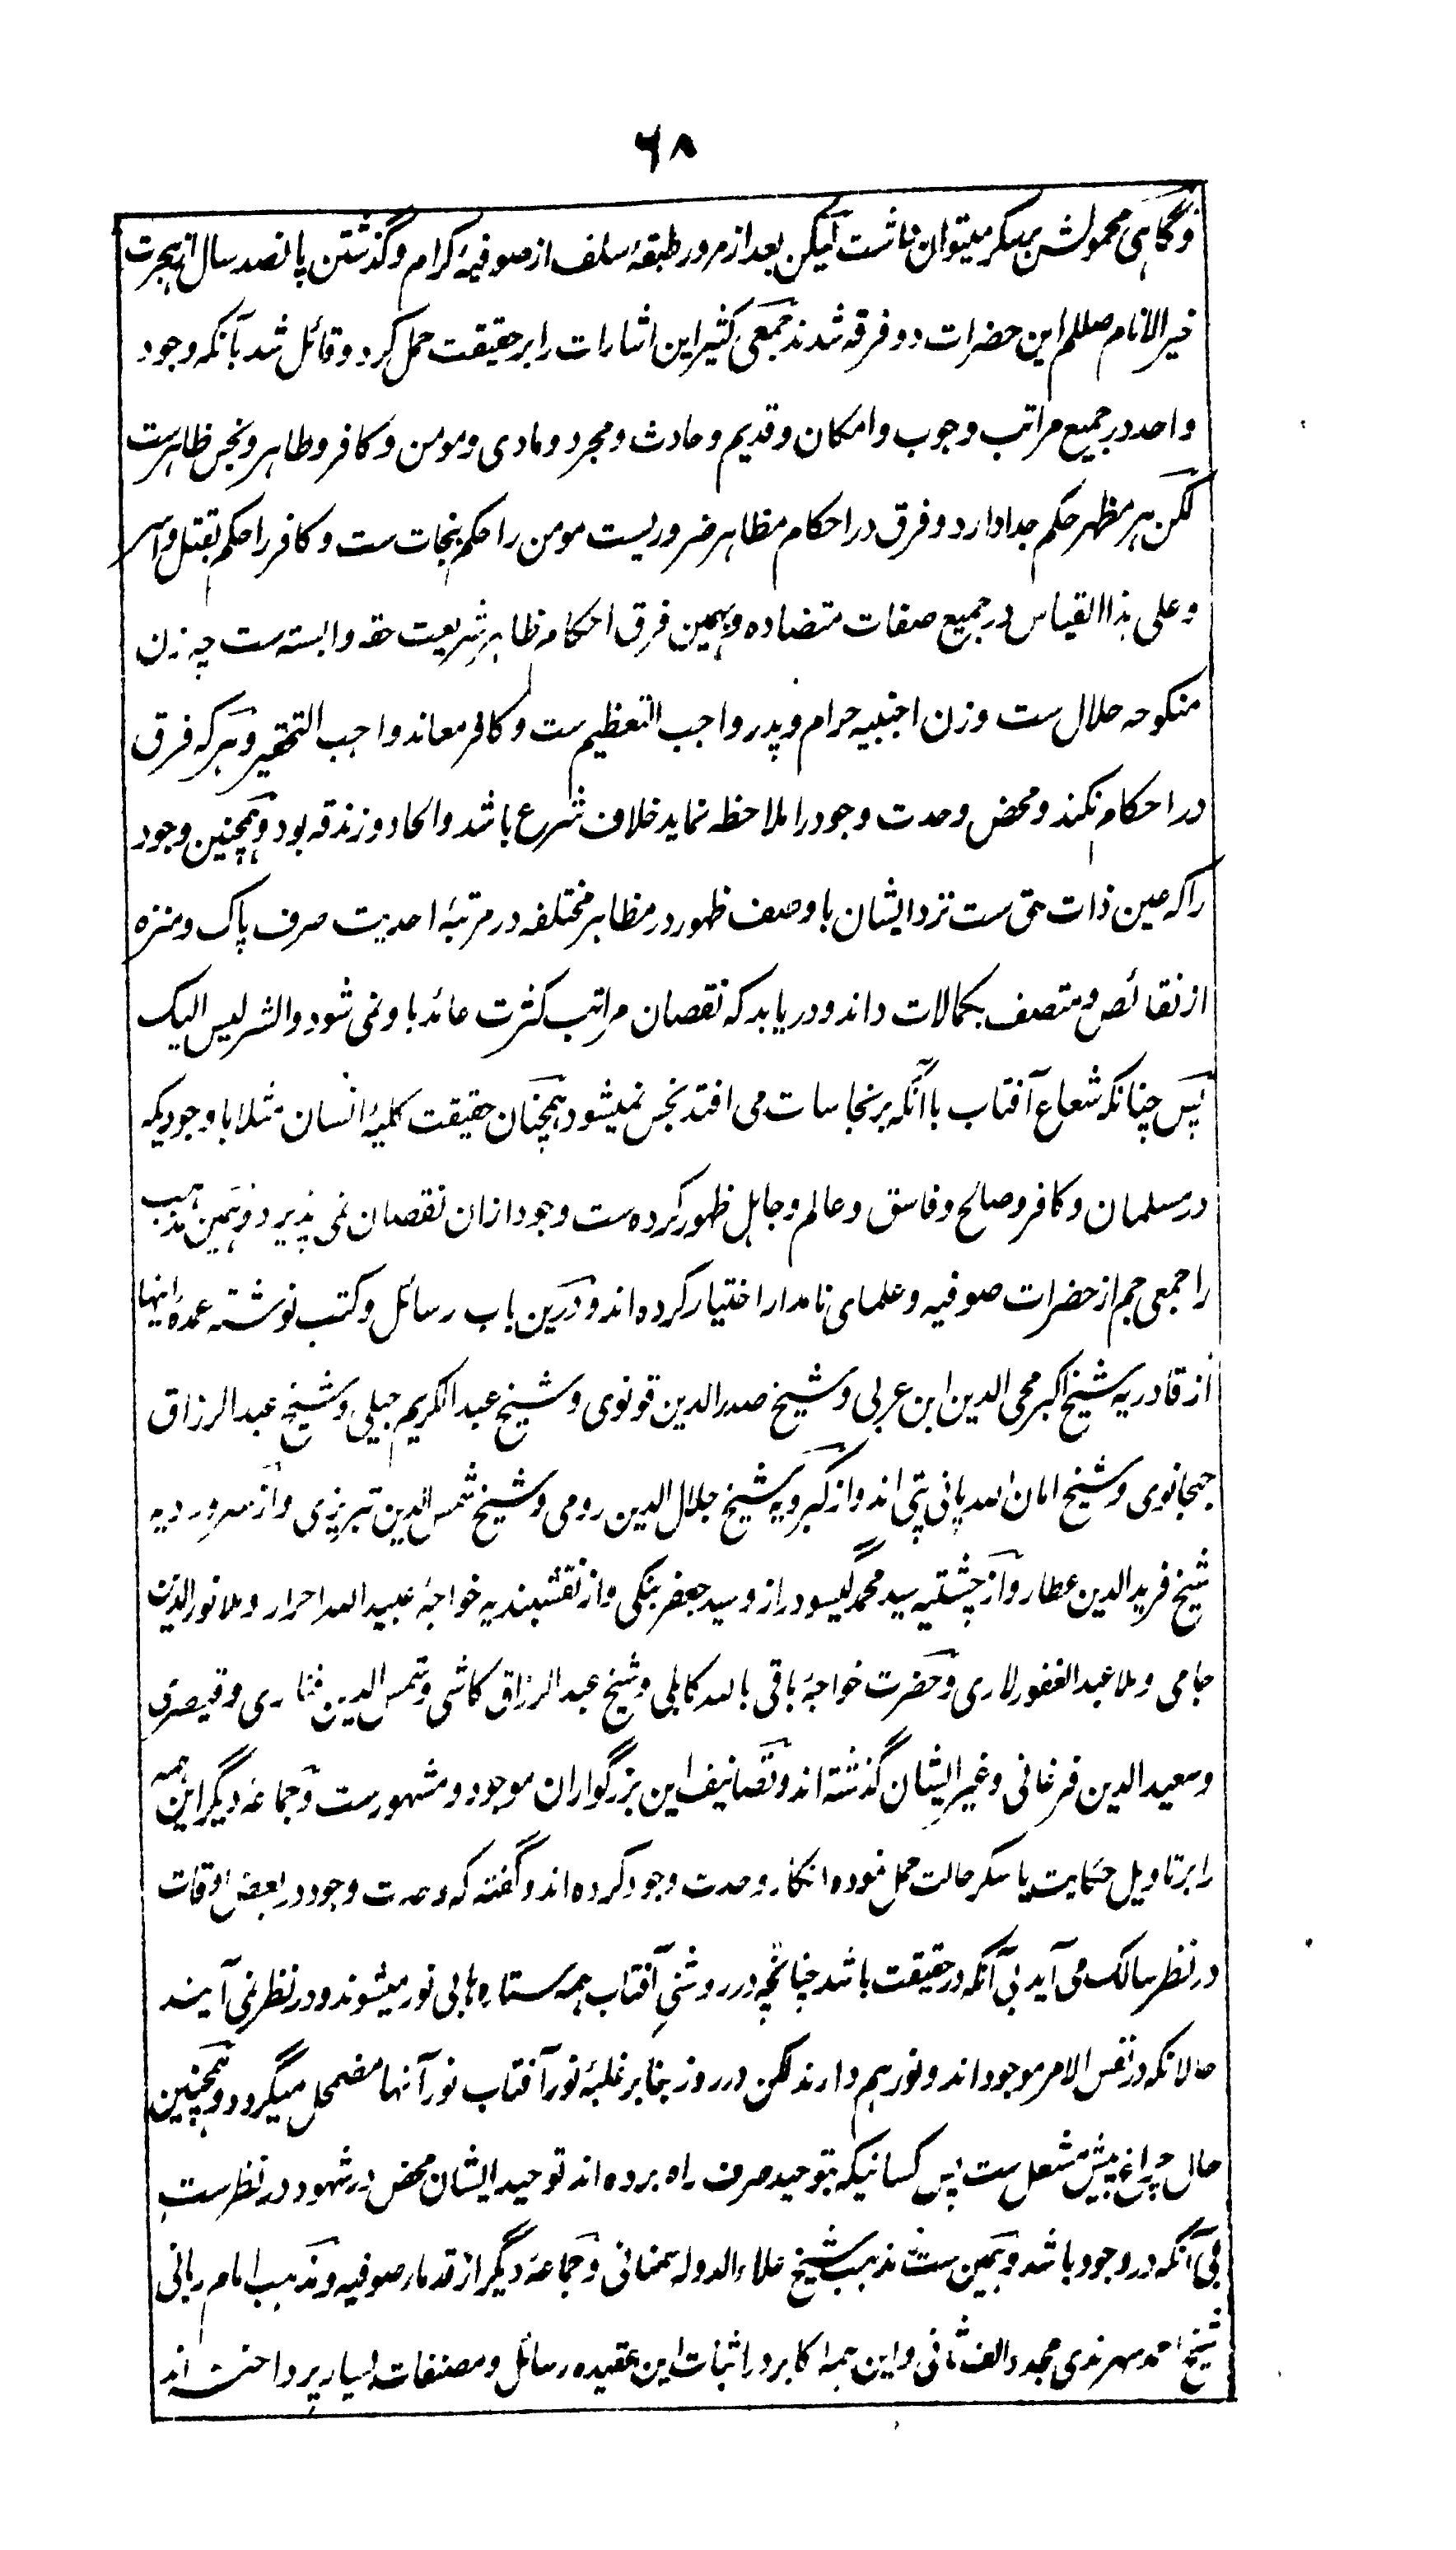 ۶۸
و گاهی محمولش بر سکر میتوان داشت لیکن بعد از مرور طبقهٔ سلف از صوفیهٔ کرام و گذشتن پانصد سال از هجرت
خیر الانام صللم این حضرات دو فرقه شدند جمعی کثیر این اشارات را بر حقیقت حمل کرد و قائل شد بآنکه وجود
واحد در جمیع مراتب وجوب و امکان و قدیم و حادث و مجرد و مادی و مومن و کافر و طاهر و نجس ظاهرست
لکن هر مظهر حکم جدا دارد و فرق در احکام مظاهر ضروریست مومن را حکم بنجات ست و کافر را حکم بقتل و اسر
و علی هذا القیاس در جمیع صفات متضاده و بهمین فرق احکام ظاهر شریعت حقه وابسته ست چه زن
منکوحه حلال ست و زن اجنبیه حرام و پدر واجب التعظیم ست و کافر معاند واجب التحقیر و هر که فرق
در احکام نکند و محض وحدت وجود را ملاحظه نماید خلاف شرع باشد و الحاد و زندقه بود و همچنین وجود
را که عین ذات حق ست نزد ایشان با وصف ظهور در مظاهر مختلفه در مرتبهٔ احدیت صرف پاک و منزه
از نقائص و متصف بکمالات داند و دریابد که نقصان مراتب کثرت عائد باو نمی شود والشر لیس الیک
پس چنانکه شعاع آفتاب با آنکه بر نجاسات می افتد نجس نمیشود همچنان حقیقت کلیهٔ انسان مثلا با وجودیکه
در مسلمان و کافر و صالح و فاسق و عالم و جاهل ظهور کرده ست وجود ازان نقصان نمی پذیرد و همین مذهب
را جمعی جم از حضرات صوفیه و علمای نامدار اختیار کرده اند و درین باب رسائل و کتب نوشته عمدهٔ اینها
از قادریه شیخ اکبر محی الدین ابن عربی و شیخ صدر الدین قونوی و شیخ عبد الکریم جیلی و شیخ عبد الرزاق
جهجانوی و شیخ امان الله پانی پتی اند و از کبرویه شیخ جلال الدین رومی و شیخ شمس الدین تبریزی و از سهروردیه
شیخ فرید الدین عطار و از چشتیه سید محمد گیسودراز و سید جعفر بنکی و از نقشبندیه خواجهٔ عبید الله احرار و ملا نور الدین
جامی و ملا عبد الغفور لاری و حضرت خواجهٔ باقی بالله کابلی و شیخ عبد الرزاق کاشی و شمس الدین فناری و قیصری
و سعید الدین فرغانی و غیر ایشان گذشته اند و تصانیف این بزرگواران موجود و مشهورست و جماعهٔ دیگر این همه
را بر تاویل حکایت یا سکر حالت حمل نموده انکار وحدت وجود کرده اند و گفته که وحدت وجود در بعض اوقات
در نظر سالک می آید بی آنکه در حقیقت باشد چنانچه در روشنی آفتاب همه ستاره ها بی نور میشوند و در نظر نمی آیند
حالانکه در نفس الامر موجود اند و نور هم دارند لکن در روز بنا بر غلبهٔ نور آفتاب نور آنها مضمحل میگردد و همچنین
حال چراغ پیش مشعل ست پس کسانیکه بتوحید صرف راه برده اند توحید ایشان محض در شهود در نظرست
بی آنکه در وجود باشد و همین ست مذهب شیخ علاء الدوله سمنانی و جماعهٔ دیگر از قدماء صوفیه و مذهب امام ربانی
شیخ احمد سهرندی مجدد الف ثانی و این همه اکابر در اثبات این عقیده رسائل و مصنفات بسیار پرداخته اند